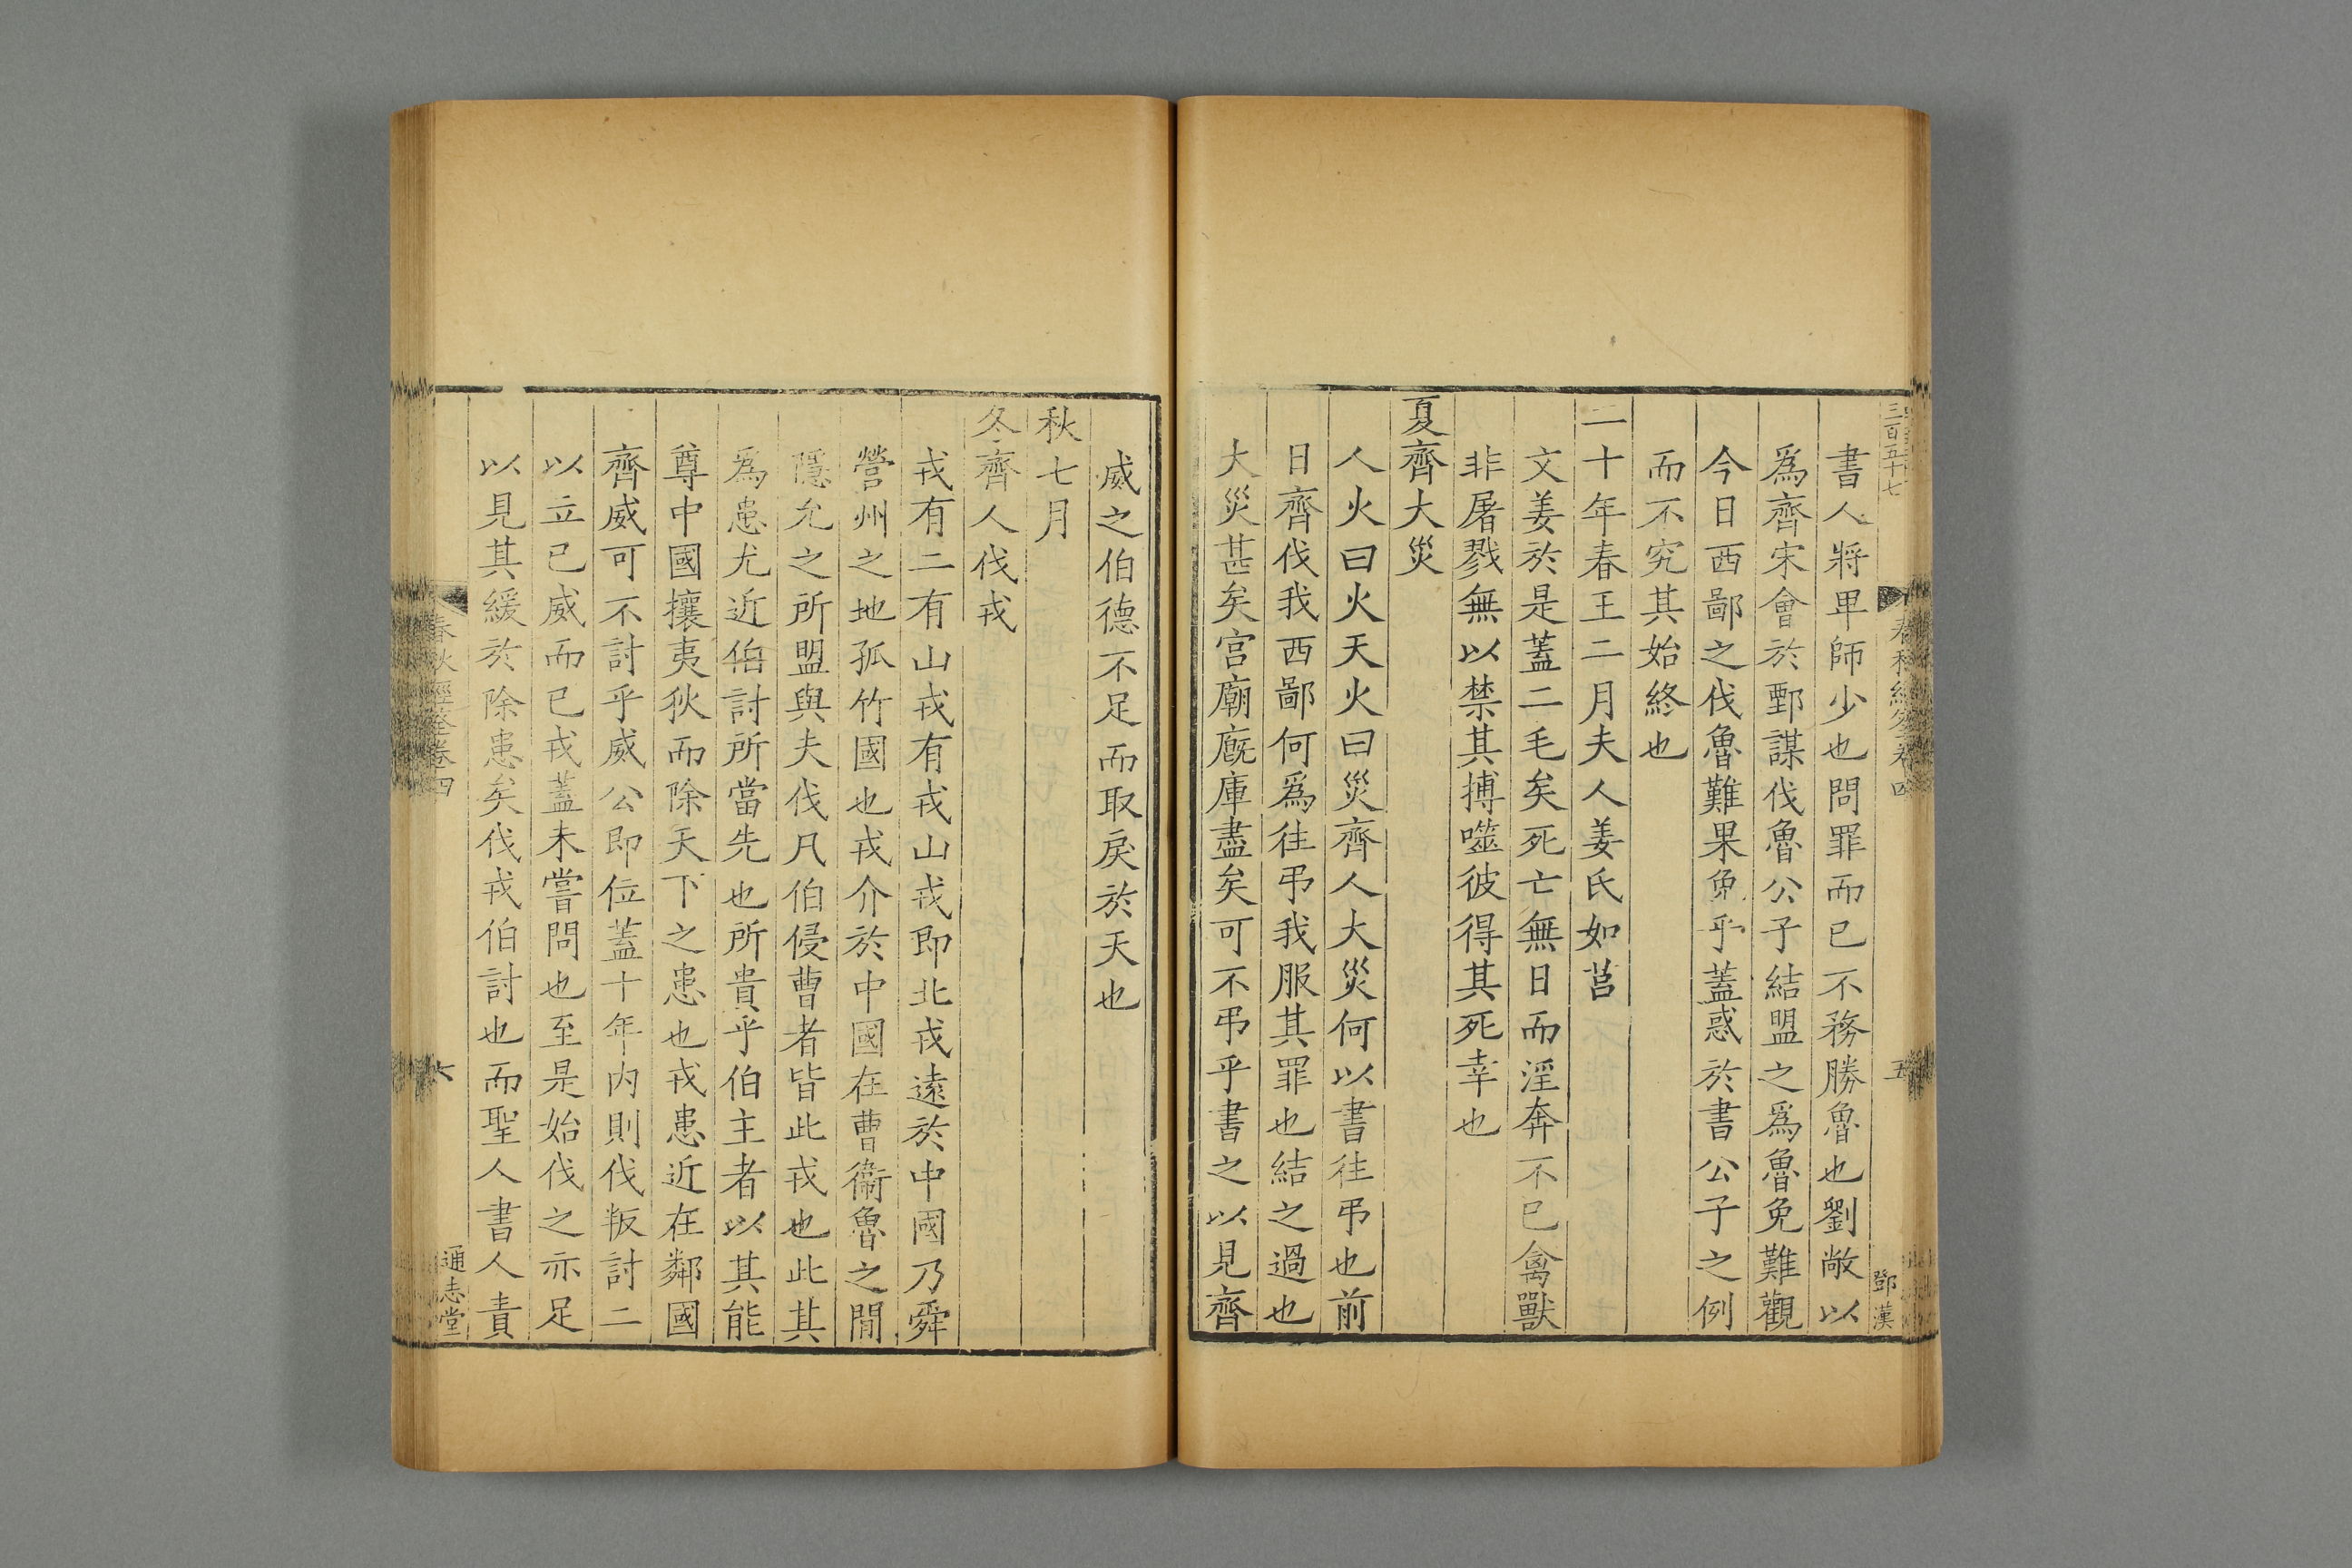 三百五十七
春秋經筌卷四
五
鄧漢
書人將卑師少也問罪而已不務勝魯也劉敞以
爲齊宋會於鄄謀伐魯公子結盟之爲魯免難觀
今日西鄙之伐魯難果免乎蓋惑於書公子之例
而不究其始終也
二十年春王二月夫人姜氏如莒
文姜於是蓋二毛矣死亡無日而淫奔不已禽獸
非屠戮無以禁其搏噬彼得其死幸也
夏齊大災
人火曰火天火曰災齊人大災何以書往弔也前
日齊伐我西鄙何爲往弔我服其罪也結之過也
大災甚矣宫廟廐庫盡矣可不弔乎書之以見齊
威之伯德不足而取戾於天也
秋七月
冬齊人伐戎
戎有二有山戎有戎山戎即北戎遠於中國乃舜
營州之地孤竹國也戎介於中國在曹衞魯之閒
隱允之所盟與夫伐凡伯侵曹者皆此戎也此其
爲患尤近伯討所當先也所貴乎伯主者以其能
尊中國攘夷狄而除天下之患也戎患近在鄰國
齊威可不討乎威公即位蓋十年内則伐叛討二
以立已威而已戎蓋未嘗問也至是始伐之亦足
以見其緩於除患矣伐戎伯討也而聖人書人責
春秋經筌卷四
六
通志堂